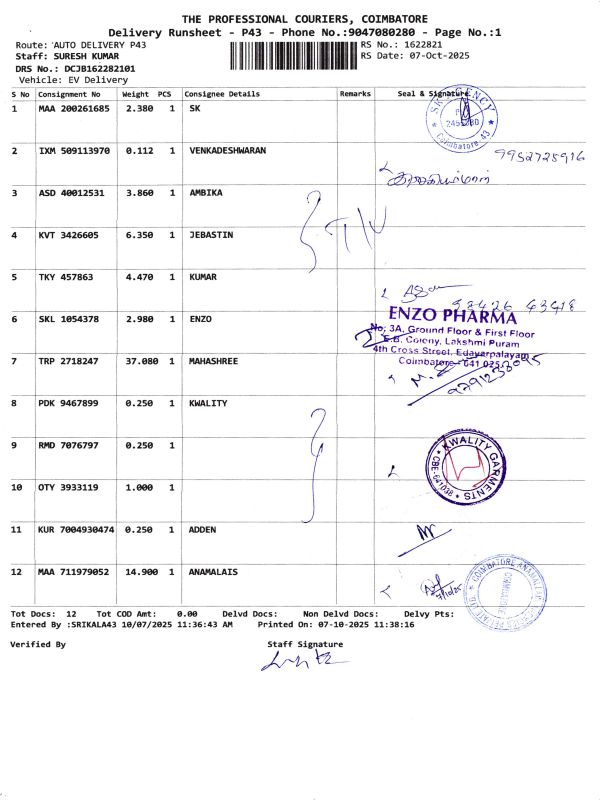 THE PROFESSIONAL COURIERS, COIMBATORE
Delivery Runsheet - P43 - Phone No.:9047080280 - Page No.:1
Route: AUTO DELIVERY P43
Staff: SURESH KUMAR
DRS No.: DCJB162282101
Vehicle: EV Delivery
RS No.: 1622821
RS Date: 07-Oct-2025
S No Consignment No Weight PCS Consignee Details Remarks Seal & Signature
1 MAA 200261685 2.380 1 SK
2 IXM 509113970 0.112 1 VENKADESHWARAN
9952725916
3 ASD 40012531 3.860 1 AMBIKA
4 KVT 3426605 6.350 1 JEBASTIN
5 TKY 457863 4.470 1 KUMAR
6 SKL 1054378 2.980 1 ENZO
ENZO PHARMA
No; 3A, Ground Floor & First Floor
E.B. Colony, Lakshmi Puram
4th Cross Street, Edayarpalayam
Coimbatore - 641 025
7 TRP 2718247 37.080 1 MAHASHREE
8 PDK 9467899 0.250 1 KWALITY
9 RMD 7076797 0.250 1
KWALITY GARMENTS
CBE-641038
10 OTY 3933119 1.000 1
11 KUR 7004930474 0.250 1 ADDEN
12 MAA 711979052 14.900 1 ANAMALAIS
Tot Docs: 12 Tot COD Amt: 0.00 Delvd Docs: Non Delvd Docs: Delvy Pts:
Entered By :SRIKALA43 10/07/2025 11:36:43 AM Printed On: 07-10-2025 11:38:16
Verified By Staff Signature